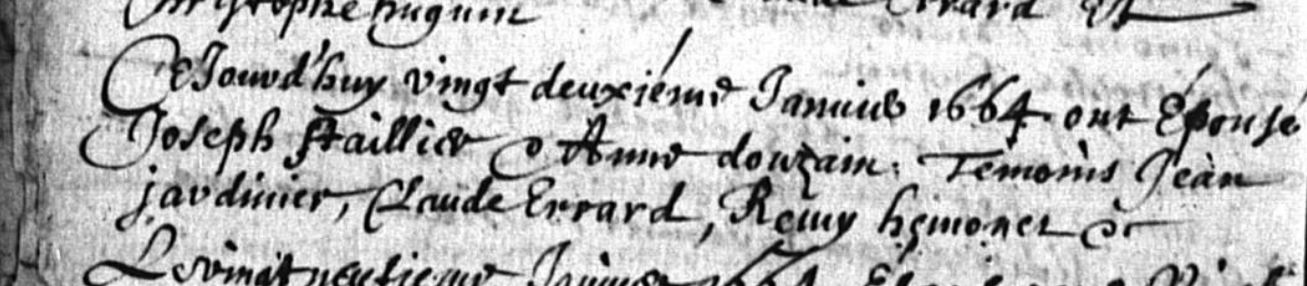 Christophe huguin Errard &
Ce Jourd'huy vingt deuxiéme Januier 1664 ont Épousé
Joseph & Anne douzain. Temoins Jean
jardinier, Claude Errard, Remy hemonet &c
Le vingt neufieme Januier 1664